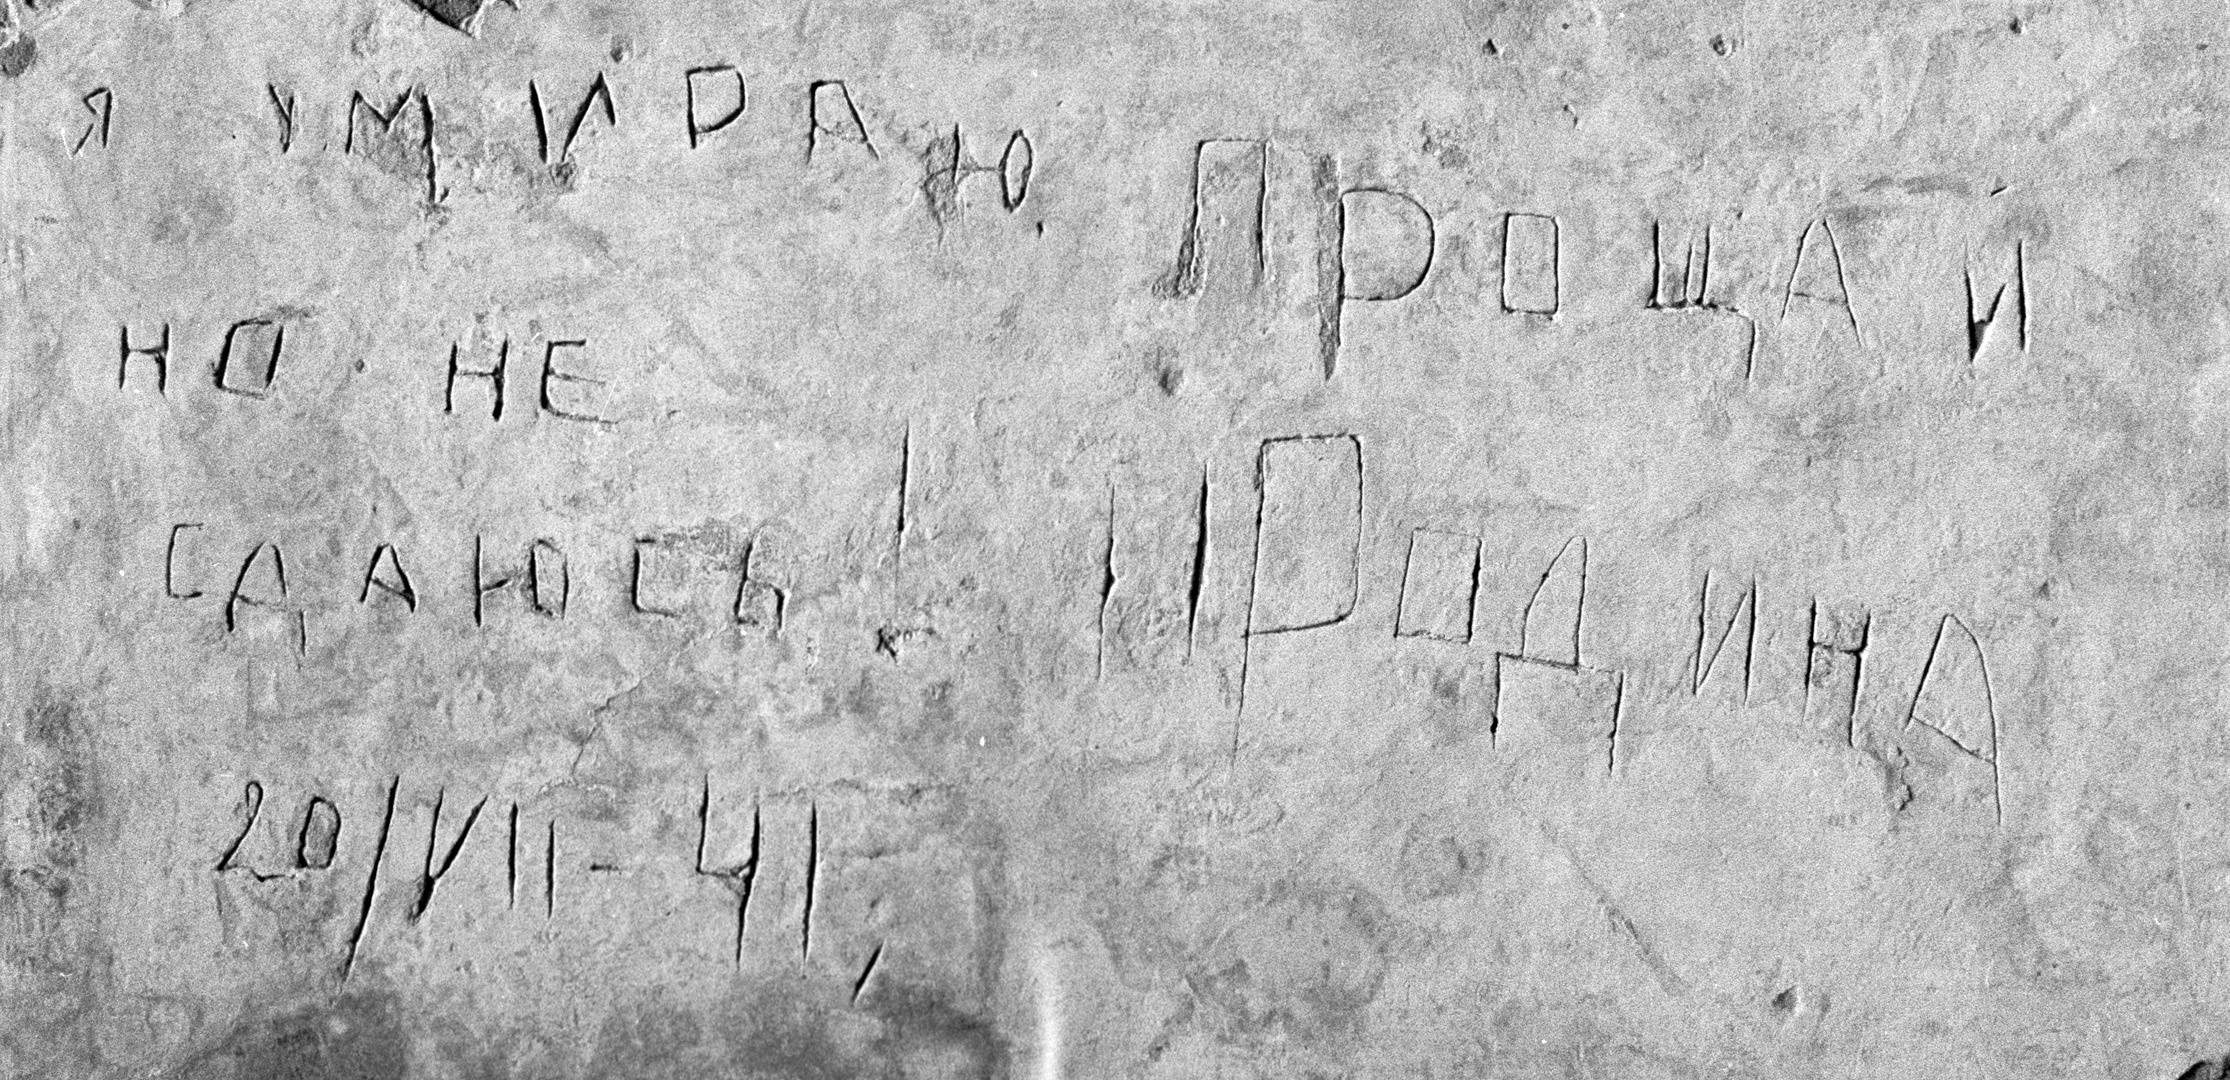 Я УМИРАЮ,
НО НЕ
СДАЮСЬ!
ПРОЩАЙ
РОДИНА
20/VII-41,